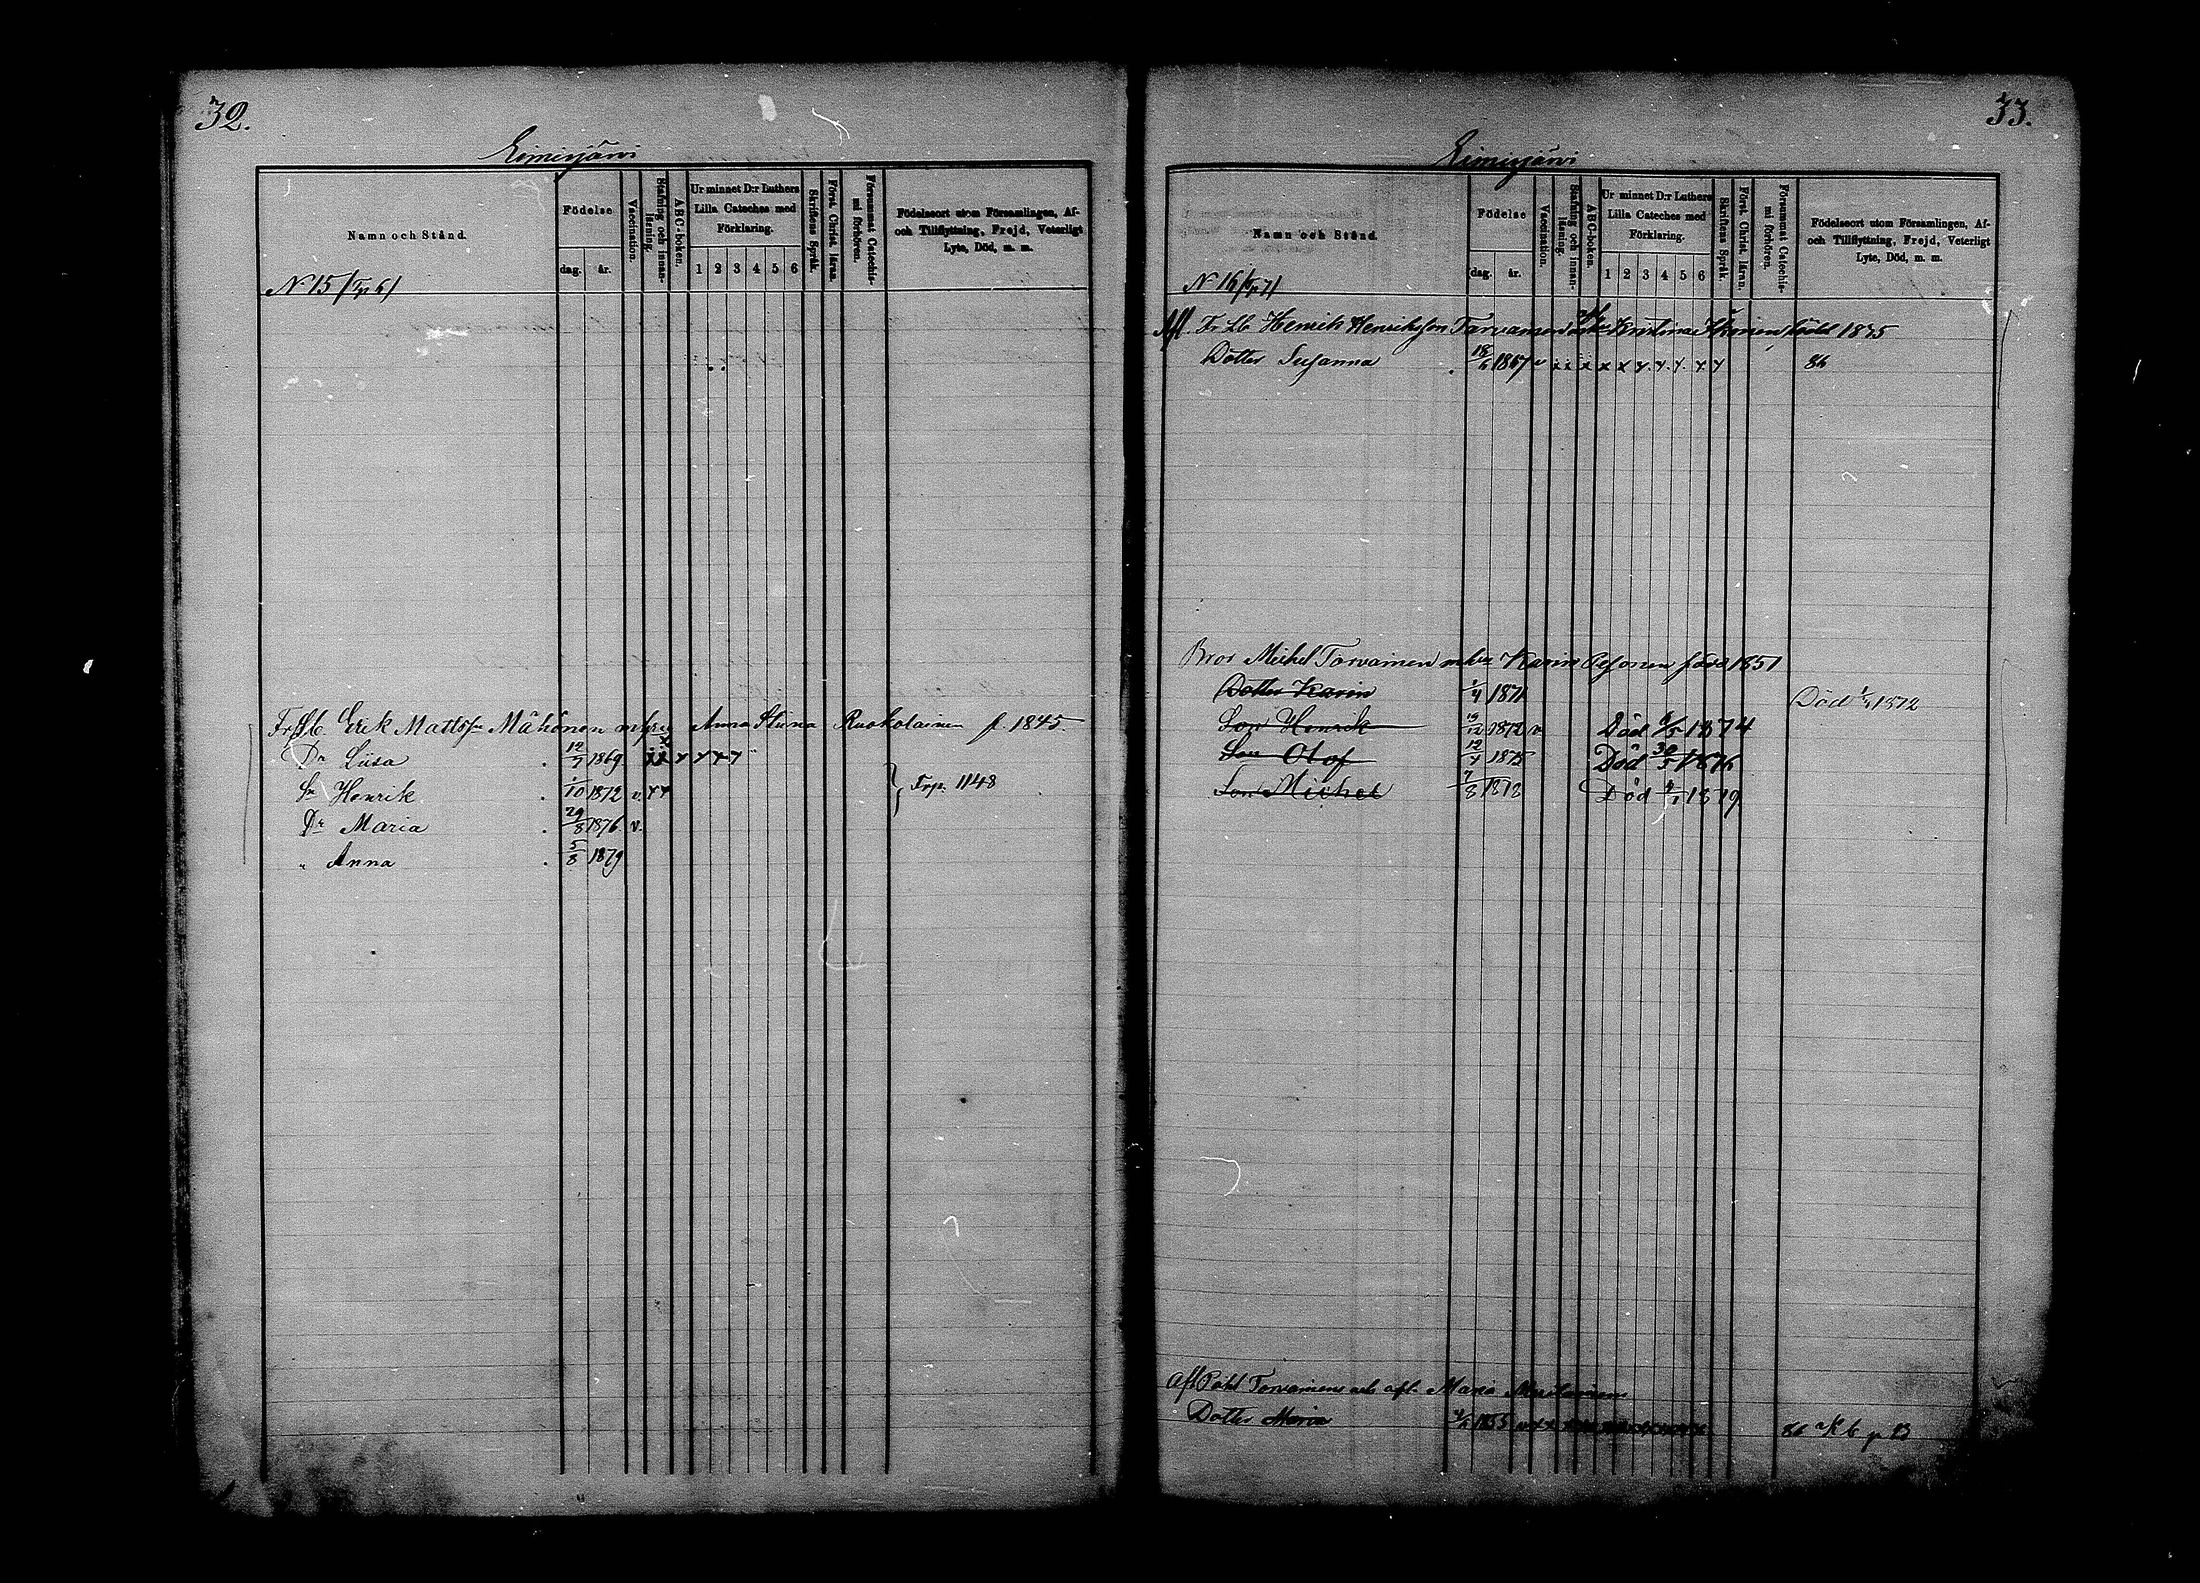 32.
Eimisjärvi
Namn och Stånd.
Födelse
dag. år.
Vaccination.
Stafning och innan-läsning.
ABC-boken.
Ur minnet D:r Luthers Lilla Cateches med Förklaring.
1 2 3 4 5 6
Skriftens Språk.
Först. Christ. läran.
Försummat Catechismi förhören.
Födelseort utom Församlingen, Af- och Tillflyttning, Frejd, Veterligt Lyte, Död, m. m.
N 15 /Trp 6/
Erik Mattss:n Mähönen m hu Anna Stina Ruokolainen f. 1845.
Dr Liisa 12/7 1869
Sn Henrik 1/10 1872 v. Frp. 1148
Dr Maria 29/8 1876 v.
" Anna 5/8 1879
33.
Eimisjärvi
Namn och Stånd.
Födelse
dag. år.
Vaccination.
Stafning och innan-läsning.
ABC-boken.
Ur minnet D:r Luthers Lilla Cateches med Förklaring.
1 2 3 4 5 6
Skriftens Språk.
Först. Christ. läran.
Försummat Catechismi förhören.
Födelseort utom Församlingen, Af- och Tillflyttning, Frejd, Veterligt Lyte, Död, m. m.
N 16
Afl. Fr Lb Henrik Henriksson Tarvainen Kristina född 1835
Dotter Susanna 18/6 1867 v 86
Bror Michel Tarvainen m hu Karin född 1851
Dotter Karin 1/4 1871 Död 1872
Son Henrik 1872 v Död 1874
Son Olof 12/4 1875 Död 30/5 1876
Son Michel 7/8 1878 Död 1879
Afl Påhl Tarvainens och afl. Maria
Dotter Maria 1855 86 Kb p 13